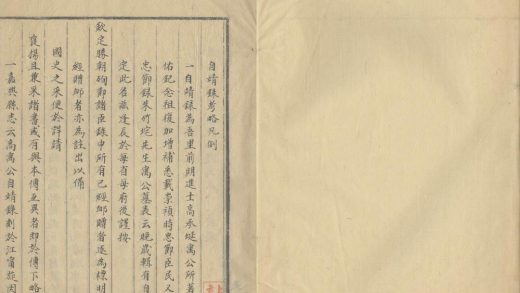 自靖錄考略凡例
一自靖錄為吾里前明進士高承埏寓公所著
佑紀念祖復加增補悉載崇禎時忠節臣民又
忠節錄朱竹垞先生寓公墓表云晚歲輯有自
定此名茲逢長於每省每府後謹按
欽定勝朝殉節諸臣錄中所有已經卹贈者逐為標明
經贈卹者亦為註出以備
國史之采便於詳請
襃揚且兼采譜書或有與本傳互異者即於傳下略
一嘉興縣志云高寓公自靖錄刻於江甯旋因